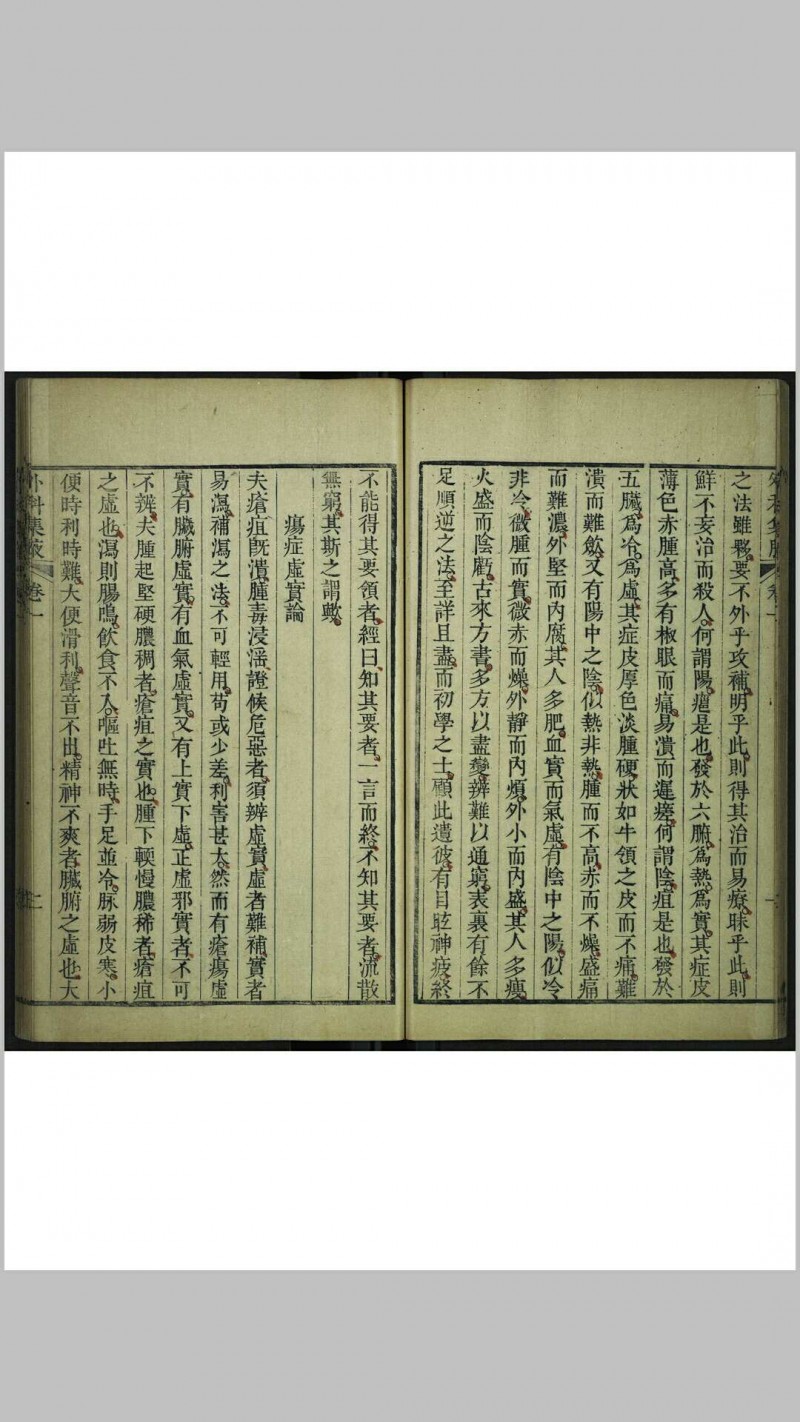 之法雖夥要不外乎攻補明乎此則得其治而易療昧乎此則
鮮不妄治而殺人何謂陽癰是也發於六腑為熱為實其症皮
薄色赤腫高多有椒眼而痛易潰而遲瘥何謂陰疽是也發於
五臟為冷為虛其症皮厚色淡腫硬狀如牛領之皮而不痛難
潰而難斂又有陽中之陰似熱非熱腫而不高赤而不燥盛痛
而難濃外堅而內腐其人多肥血實而氣虛有陰中之陽似冷
非冷微腫而實微赤而燥外靜而內煩外小而內盛其人多瘦
火盛而陰虧古來方書多方以盡變辨難以通窮表裏有餘不
足順逆之法至詳且盡而初學之士顧此遺彼有目眩神疲終
不能得其要領者經曰知其要者一言而終不知其要者流散
無窮其斯之謂歟
瘍症虛實論
夫瘡疽既潰腫毒浸滛證候危惡者須辨虛實虛者難補實者
易瀉補瀉之法不可輕用苟或少差利害甚大然而有瘡瘍虛
實有臟腑虛實有血氣虛實又有上實下虛正虛邪實者不可
不辨夫腫起堅硬膿稠者瘡疽之實也腫下輭慢膿稀者瘡疽
之虛也瀉則腸鳴飲食不入嘔吐無時手足並冷脉弱皮寒小
便時利時難大便滑利聲音不出精神不爽者臟腑之虛也大
外科集腋 卷一 二